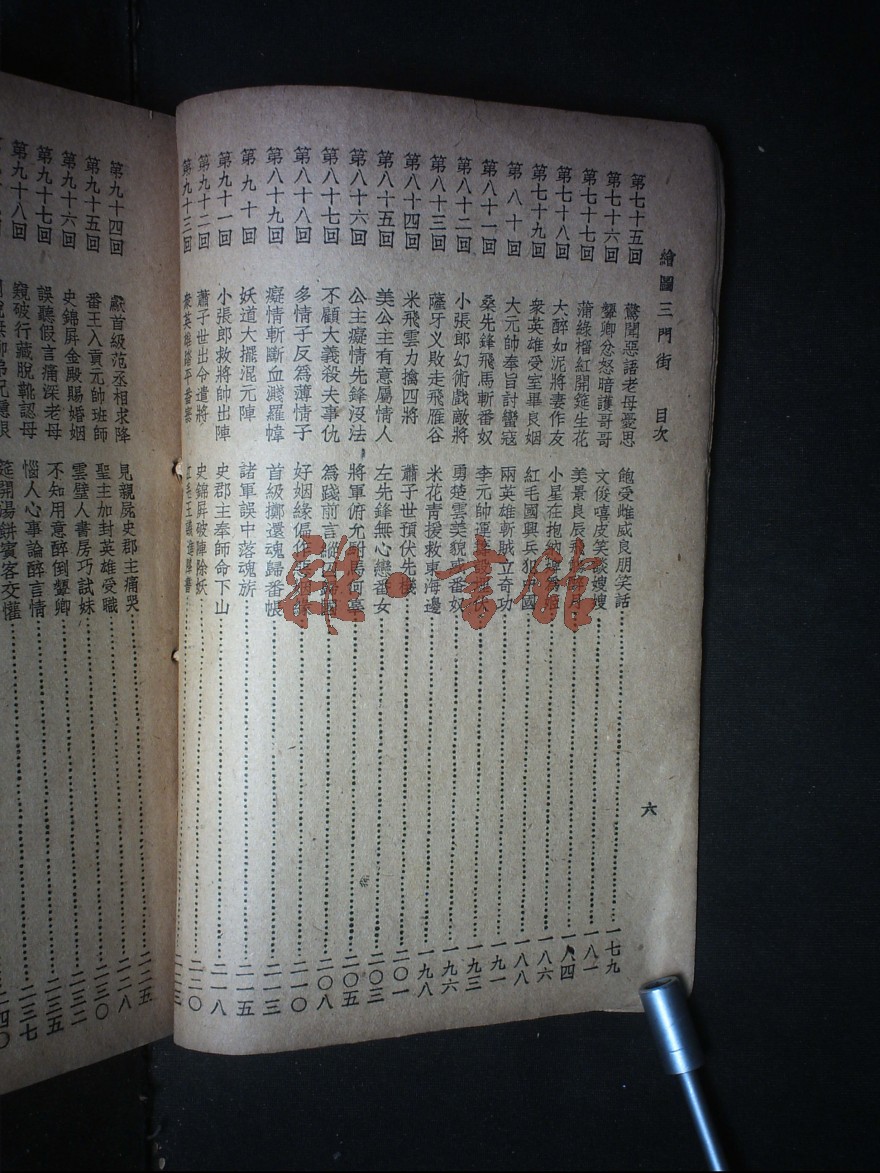 繪圖三門街 目次 六
第七十五回 驚聞惡語老母憂思 飽受雌威良朋笑話 一七九
第七十六回 顰卿忿怒暗護哥哥 文俊嘻皮笑談嫂嫂 一八一
第七十七回 蒲綠榴紅開筵生花 美景良辰 一八四
第七十八回 大醉如泥將妻作友 小星在抱 一八六
第七十九回 衆英雄受室畢良姻 紅毛國興兵犯 國 一八八
第八十回 大元帥奉旨討蠻寇 兩英雄斬賊立奇功 一九一
第八十一回 桑先鋒飛馬斬番奴 李元帥運 一九三
第八十二回 小張郎幻術戲敵將 勇楚雲美貌 番奴 一九六
第八十三回 薩牙义敗走飛雁谷 米花青援救東海邊 一九八
第八十四回 米飛雲力擒四將 蕭子世預伏先機 二〇一
第八十五回 美公主有意屬情人 左先鋒無心戀番女 二〇三
第八十六回 公主癡情先鋒沒法 將軍俯允駙馬何 二〇五
第八十七回 不顧大義殺夫事仇 爲踐前言縱囚 二〇八
第八十八回 多情子反爲薄情子 好姻緣偏作 二一〇
第八十九回 癡情斬斷血濺羅幃 首級擲還魂歸番帳 二一三
第九十回 妖道大擺混元陣 諸軍誤中落魂旗 二一五
第九十一回 小張郎救將帥出陣 史郡主奉師命下山 二一八
第九十二回 蕭子世出令遣將 史錦屏破陣除妖 二二〇
第九十三回 衆英雄踏平番寨 紅毛王議進降書 二二三
第九十四回 獻首級范丞相求降 見親屍史郡主痛哭 二二五
第九十五回 番王入貢元帥班師 聖主加封英雄受職 二二八
第九十六回 史錦屏金殿賜婚姻 雲璧人書房巧試妹 二三〇
第九十七回 誤聽假言痛深老母 不知用意醉倒顰卿 二三二
第九十八回 窺破行藏脫靴認母 惱人心事論醉言情 二三五
筵開湯餅賓客交懽 二三七
二四〇
雜·書館